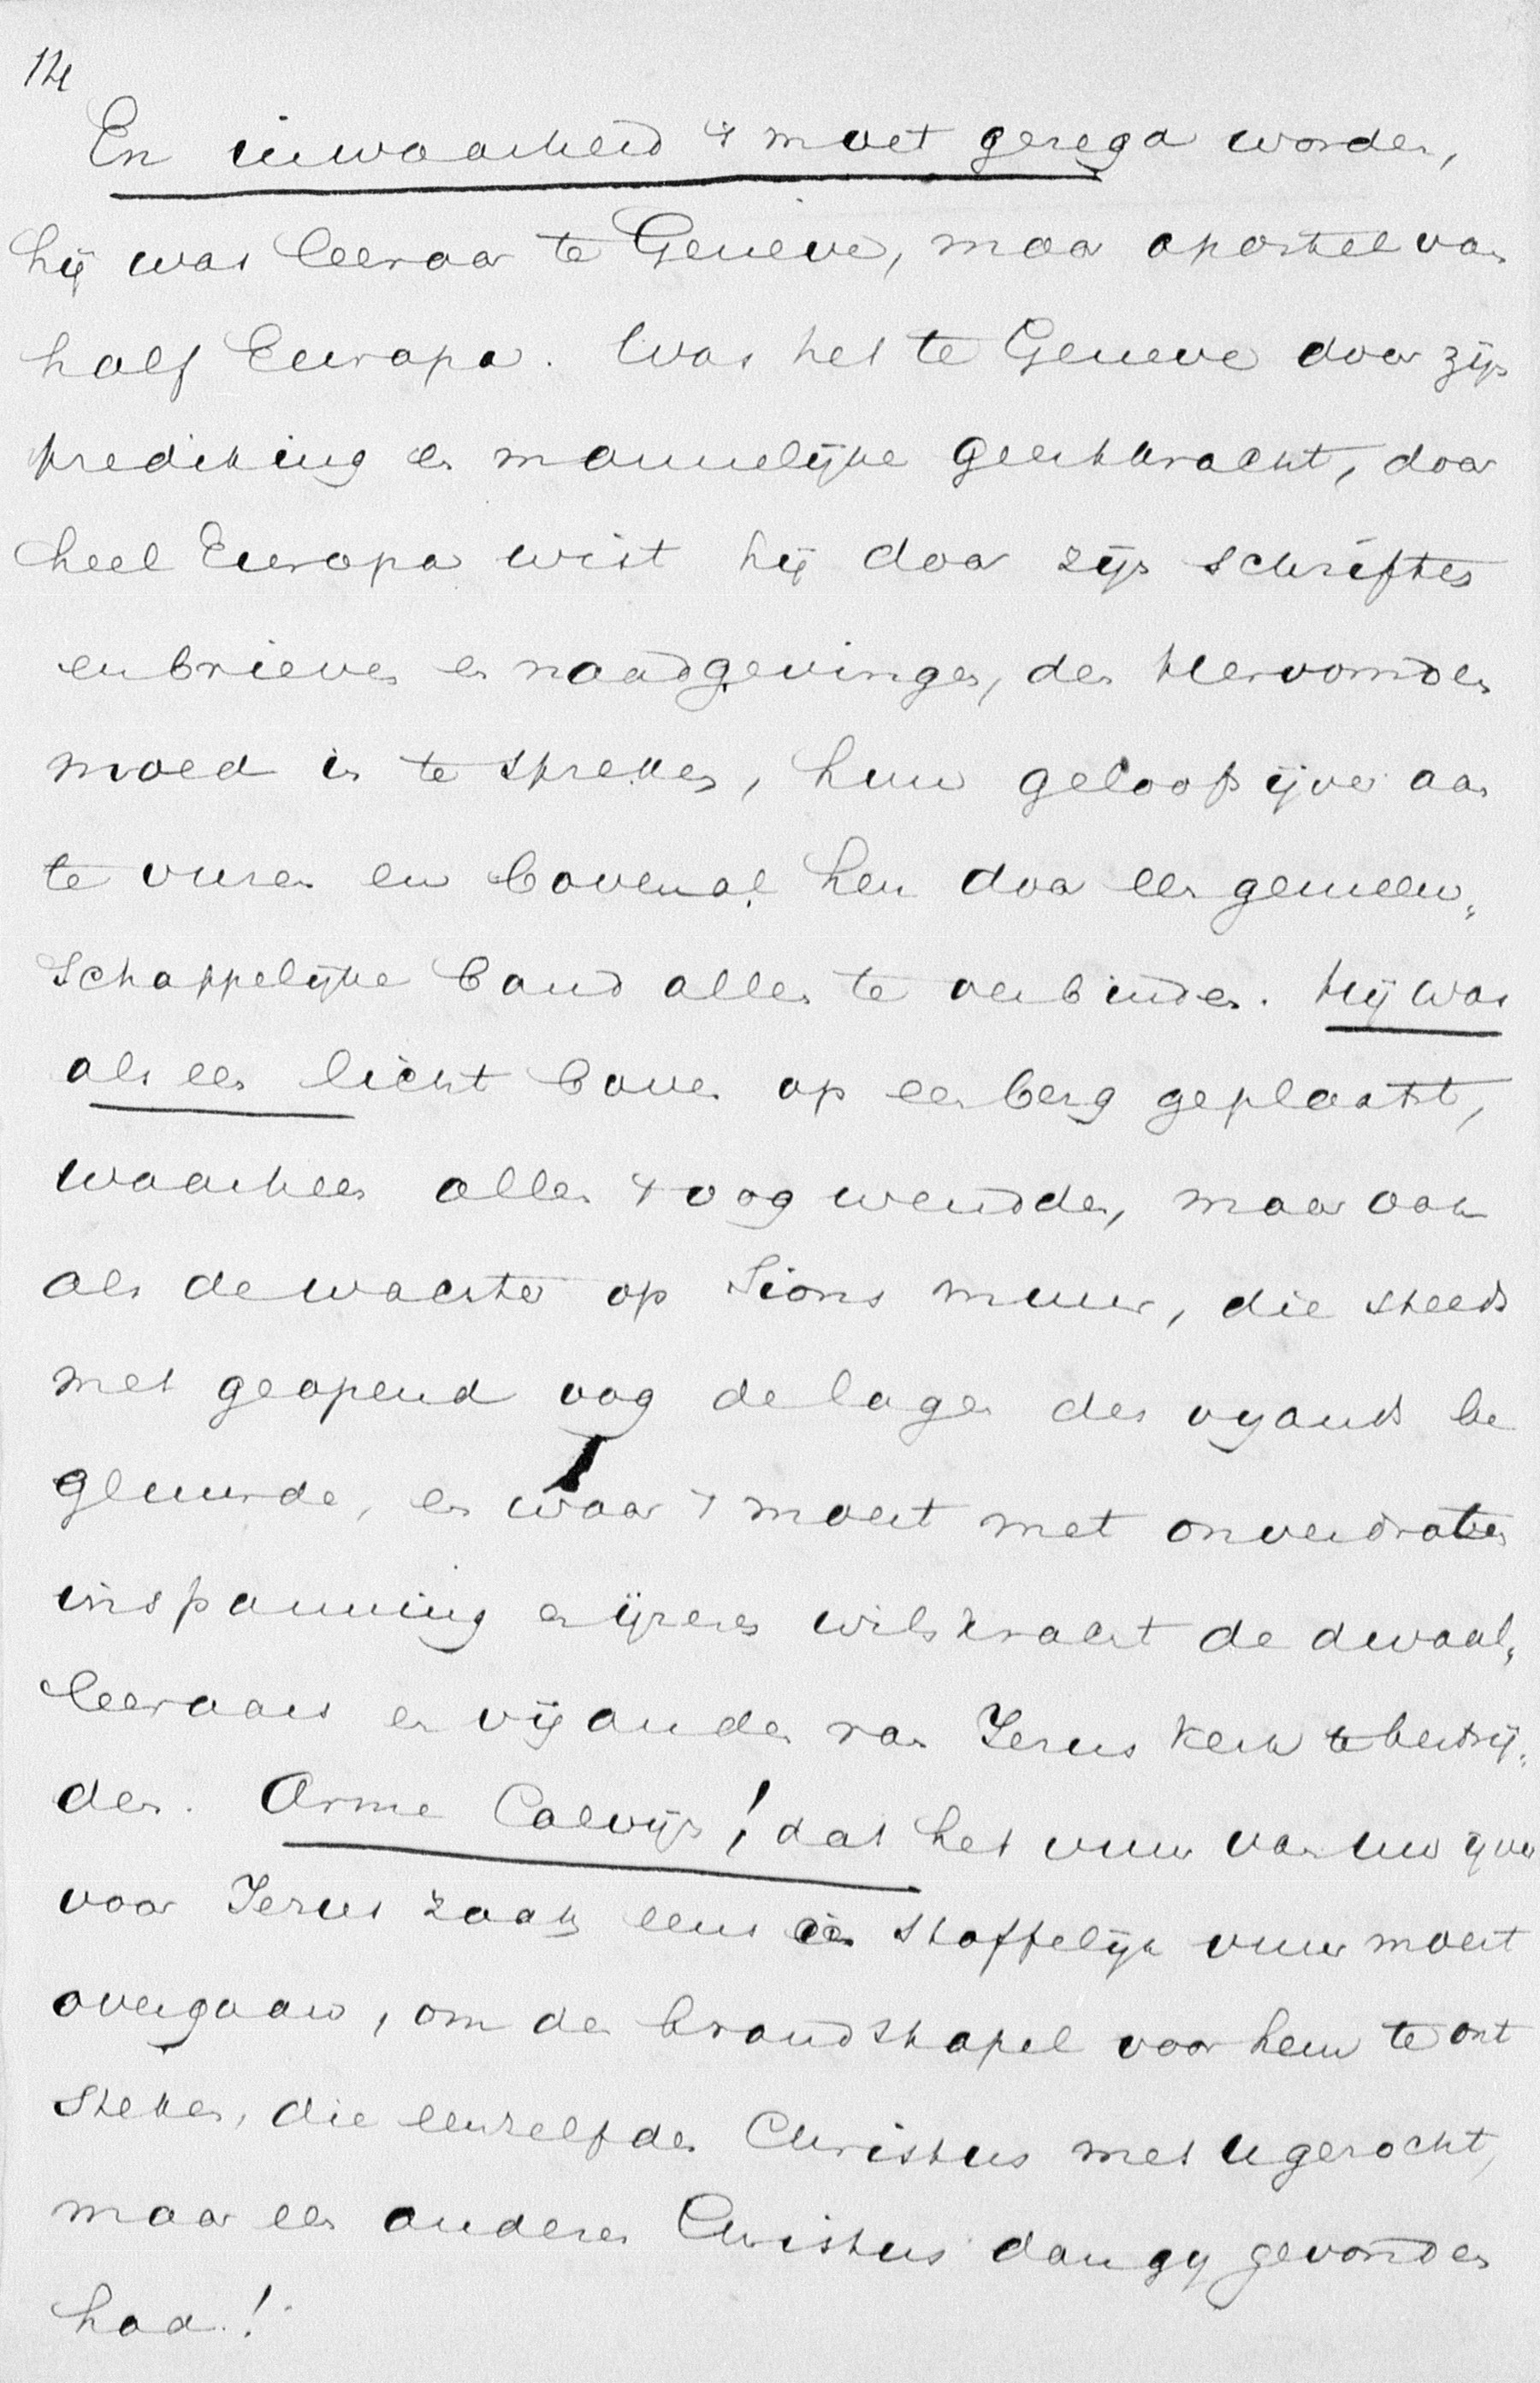 14
En inwaarheid 't moet gezegd worden,
hij was leeraar te Genève, maar apostel van
half Europa. Was het te Geneve door zijn
prediking en mannelijke geestkracht, door
heel Europa wist hij door zijn schriften
en brieven en raadgevingen, den Hervormden
moed in te spreken, hun geloofsijver aan
te vuren en bovenal hen door een gemeen„
schappelijke band allen te verbinden. Hij was
als een licht boven op een berg geplaatst,
waarheen allen 't oog wendden, maar ook
als de wachter op Sions muur, die steeds
met geopend oog de lagen des vyands be
gluurde, en waar 't moest met onverdroten
inspanning en ijzeren wilskracht de dwaal„
leeraars en vijanden van Jezus kerk te bestrij„
den. Arme Calvijn! dat het vuur van uw ijver
voor Jezus zaak eens in stoffelijk vuur moest
overgaan, om den brandstapel voor hem te ont
steken, die eenzelfden Christus met u gezocht,
maar een anderen Christus dan gy gevonden
had!